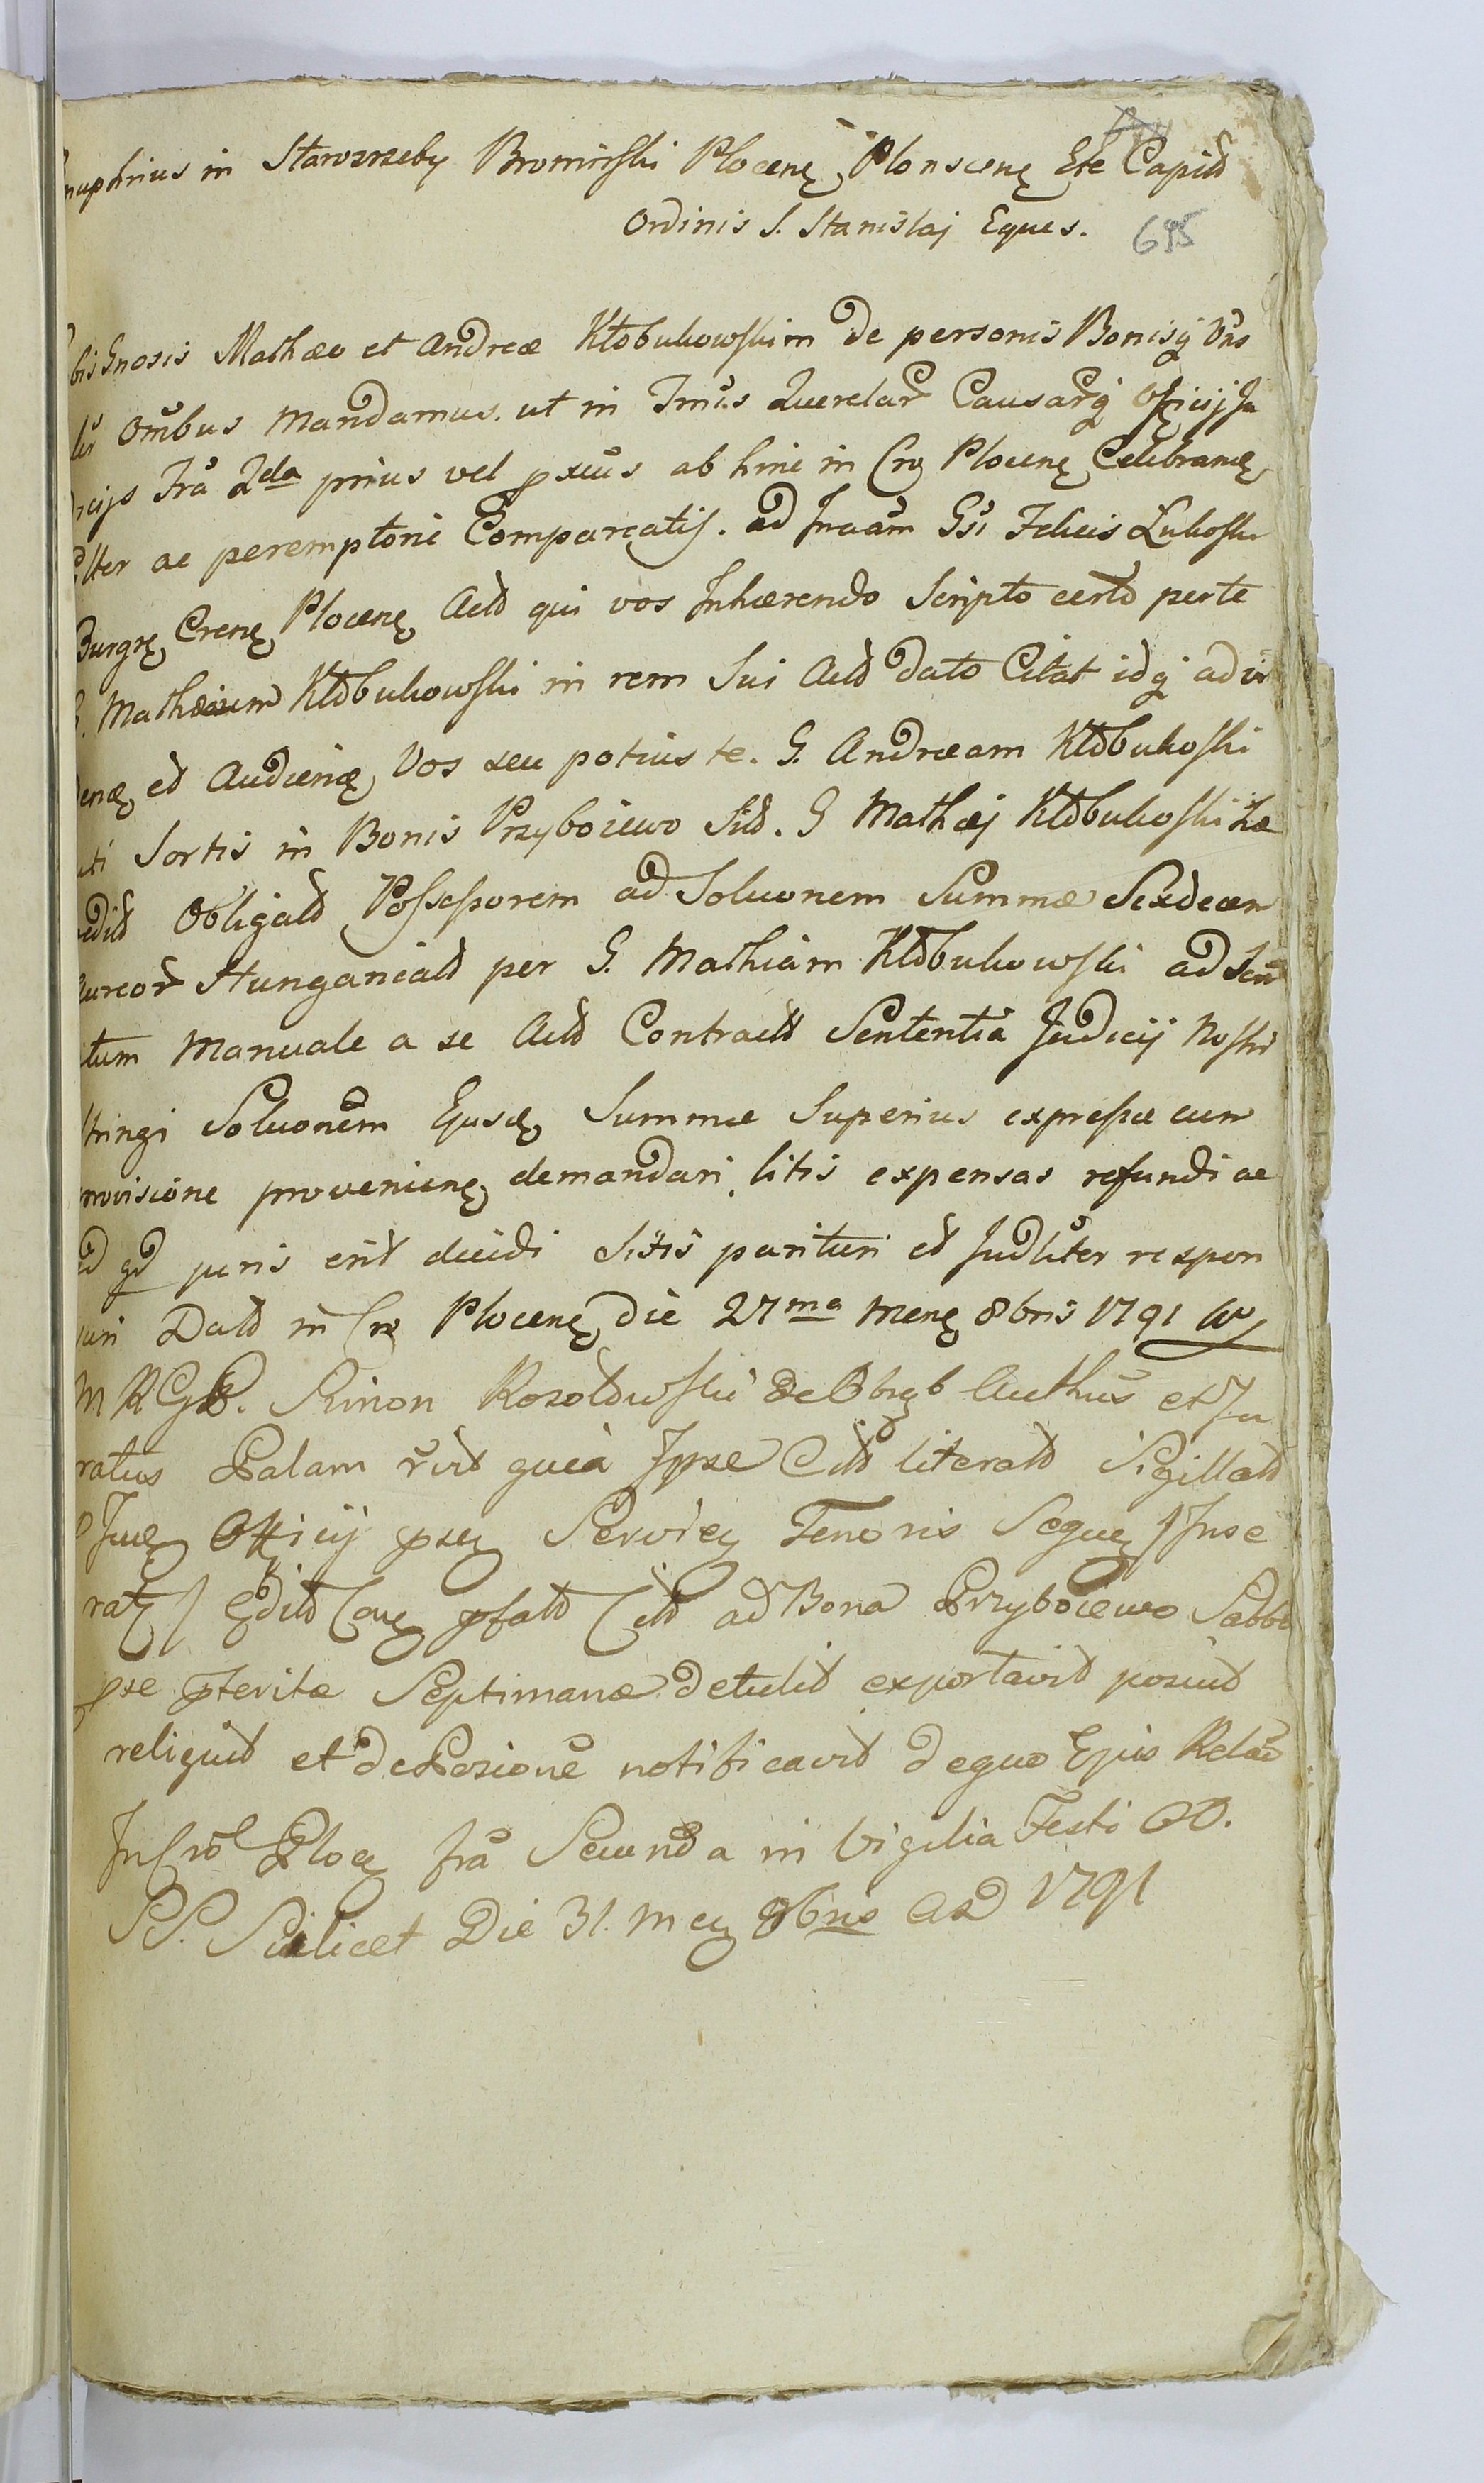 nuphrius in Starozreby Bromirski Plocenę, Plonscenę Ete Capitd
Ordinis S. Stanislaj Eques.
695
bis Gnosis Mathæo et Andreæ Kłobukowskim de personis Bonisq̃
Omĩbus Mandamus. ut in Querelar̃ Causarq̃ Officij Ju
dicijs Frã 2da prius vel pxeus ab hinc in Cro Plocenę Celebranę
lter ac peremptorie Compareatis. ad Jnaãm Gsi Felicis Lukoski
Burgrę Crenę Plocenę Actd qui vos Jnhærendo Scripto certo perte
G. Mathæum Kłobukowski in rem Sui Actd dato Citat idq̃ ad vi
denę ed Audienę Vos seu potius te. G. Andræam Kłobukoski
uti Sortis in Bonis Przyboiewo Sitd. G Mathæj Kłobukoski hæ
reditd Obligatd Possessorem ad Soluonem Summæ Sexdecem
Aureor̃ Hungaricald per G. Mathiam Kłobukowski ad Scri
ptum Manuale a se Actd Contractd Sententiã Judicij Nostri
stringi Soluonẽm Ejusdę Summæ Superius expressæ cum
provisione provenienę demandari, litis expensas refundi ac
id qd juris erit decidi Sitis parituri ed Judliter respon
suri Datd in Cro Plocenę die 27ma Menę 8bris 1791 Ao
M R G. Simon Kosołowski de Obręb Authũs et Ju
ratus Palam r̃ud quia Jpse Citd literatd Sigillatd
Officij Serviey Tenoris Sequeę /Jnse
ratę/ Editd Cone pfatd Citd ad Bona Przyboiewo Sabbo
pxe pterite Septimanæ detulit exportavit posuit
reliquit et de Posizione notificavit dequo Ejus Relão
Jn Crõ Ploceę frã Secunda in Vigilia Festi OO.
SS. Scilicet Die 31. Meę 8bris AD 1791